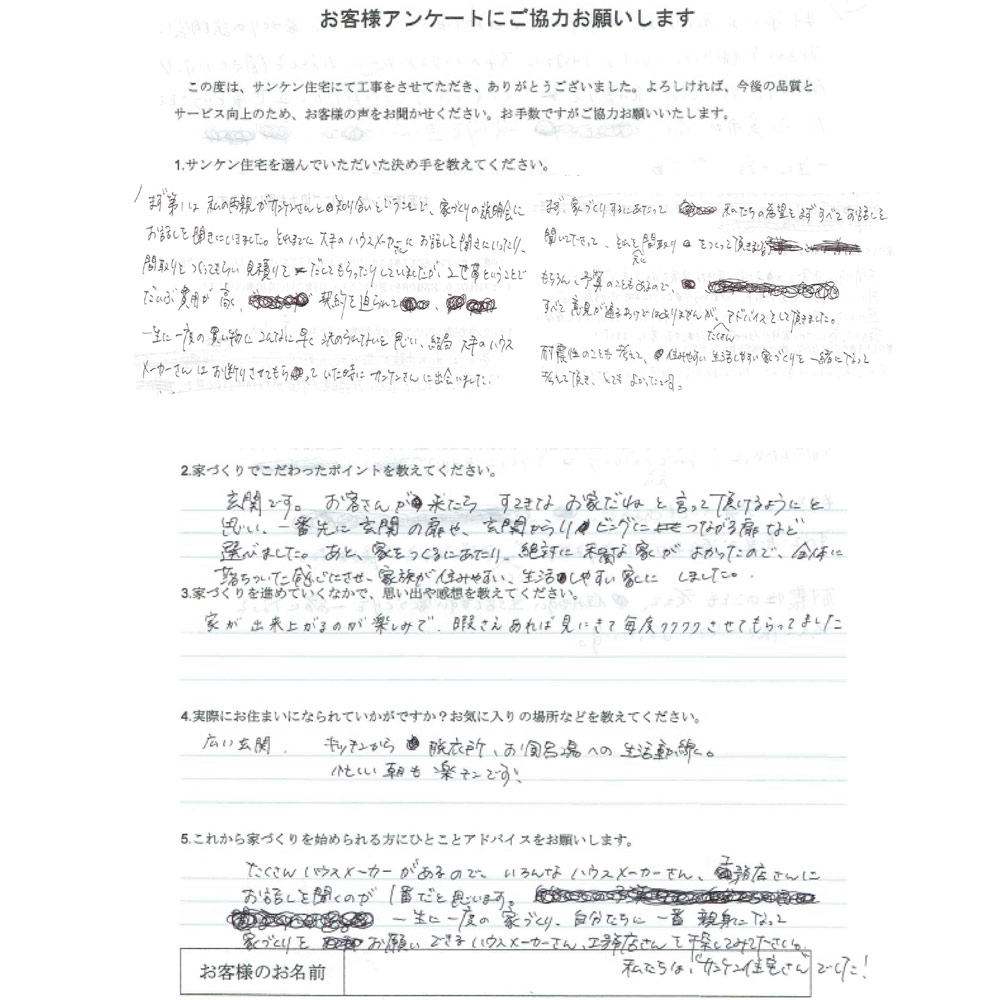 お客様アンケートにご協力お願いします
この度は、サンケン住宅にて工事をさせてただき、ありがとうございました。よろしければ、今後の品質と
サービス向上のため、お客様の声をお聞かせください。お手数ですがご協力お願いいたします。
1.サンケン住宅を選んでいただいた決め手を教えてください。
まず第1は 私の両親がサンケンさんと知り合いということで、家づくりの説明会に
お話しを聞きにいきました。それまでに 大手のハウスメーカーにお話しを聞きにいったり、
間取りをつくってもらい見積りをだしてもらったりしていましたが、2世帯ということで
だいぶ費用が高く、契約を迫られて
一生に一度の買い物にこんなに早く決めらないと思い、結局 大手のハウス
メーカーさんはお断りさせてもらっていた時にサンケンさんに出会いました。
まず、家づくりするにあたって 私たちの希望をまずすべてお話しを
聞いて下さって、それを元に間取りをつくって頂きました
もちろん、予算のこともあるので、
すべて意見が通るわけではありませんが、たくさんアドバイスをして頂きました。
耐震性のことも考えて、住みやすい 生活しやすい家づくりを一緒になって
考えて頂き、とてもよかったです。
2.家づくりでこだわったポイントを教えてください。
玄関です。お客さんが来たら すてきな お家だね と言って頂けるようにと
思い、一番先に玄関の扉や、玄関からリビングにつながる扉など
選びました。あと、家をつくるにあたり、絶対に 和風な家がよかったので、全体に
落ちついた感じにさせ、家族が住みやすい、生活しやすい家にしました。
3.家づくりを進めていくなかで、思い出や感想を教えてください。
家が出来上がるのが楽しみで、暇さえあれば見にきて毎度ワクワクさせてもらってました
4.実際にお住まいになられていかがですか？お気に入りの場所などを教えてください。
広い玄関、キッチンから 脱衣所、お風呂場への生活動線。
忙しい朝も楽チンです!
5.これから家づくりを始められる方にひとことアドバイスをお願いします。
たくさんハウスメーカーがあるので、いろんなハウスメーカーさん、工務店さんに
お話しを聞くのが1番だと思います。
一生に一度の家づくり、自分たちに一番親身になって
家づくりをお願いできるハウスメーカーさん、工務店さんを探してみて下さい。
私たちは、"サンケン住宅さん"でした!
お客様のお名前